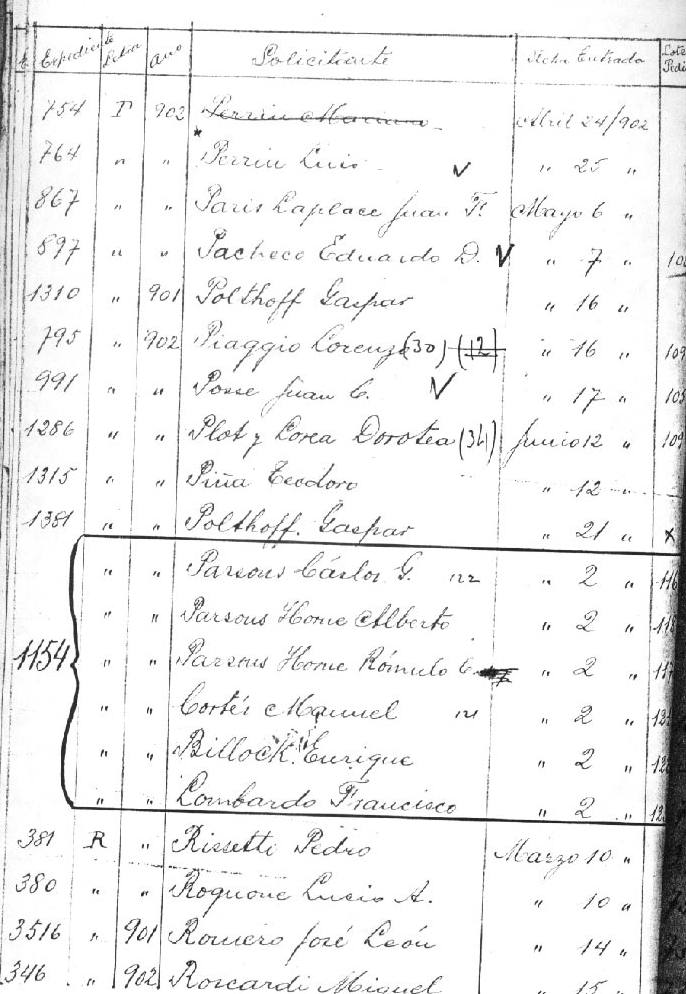 Expediente Letra Año Solicitante Fecha Entrada Lote
754 P 902 Perrin Mariano Abril 24/902
764 " " Perrin Luis " 25 "
867 " " Paris Laplace Juan F. Mayo 6 "
897 " " Pacheco Eduardo D. " 7 "
1310 " 901 Polthoff Gaspar " 16 "
795 " 902 Piaggio Lorenzo (30) (12) " 16 " 109
991 " " Posse Juan C. " 17 "
1286 " " Plot y Lorea Dorotea (34) Junio 12 " 109
1315 " " Piña Teodoro " 12 "
1381 " " Polthoff. Gaspar " 21 " x
" " Parsons Cárlos G. " 2 " 116
" " Parsons Horne Alberto " 2 " 118
1154 " " Parsons Horne Rómulo C. " 2 " 117
" " Cortés Manuel " 2 "
" " Billock Enrique " 2 "
" " Lombardo Francisco " 2 "
381 R " Rissetti Pedro Marzo 10 "
380 " " Roquone Lucio A. " 10 "
3516 " 901 Romero José León " 14 "
346 " 902 Roscardi Miguel " 15 "